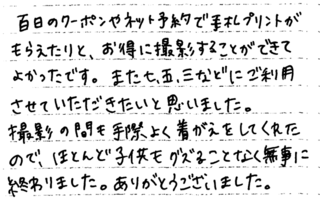 百日のクーポンやネット予約で手札プリントが
もらえたりと、お得に撮影することができて
よかったです。また七、五、三などにご利用
させていただきたいと思いました。
撮影の間も手際よく着がえをしてくれた
ので、ほとんど子供もグズることなく無事に
終わりました。ありがとうございました。